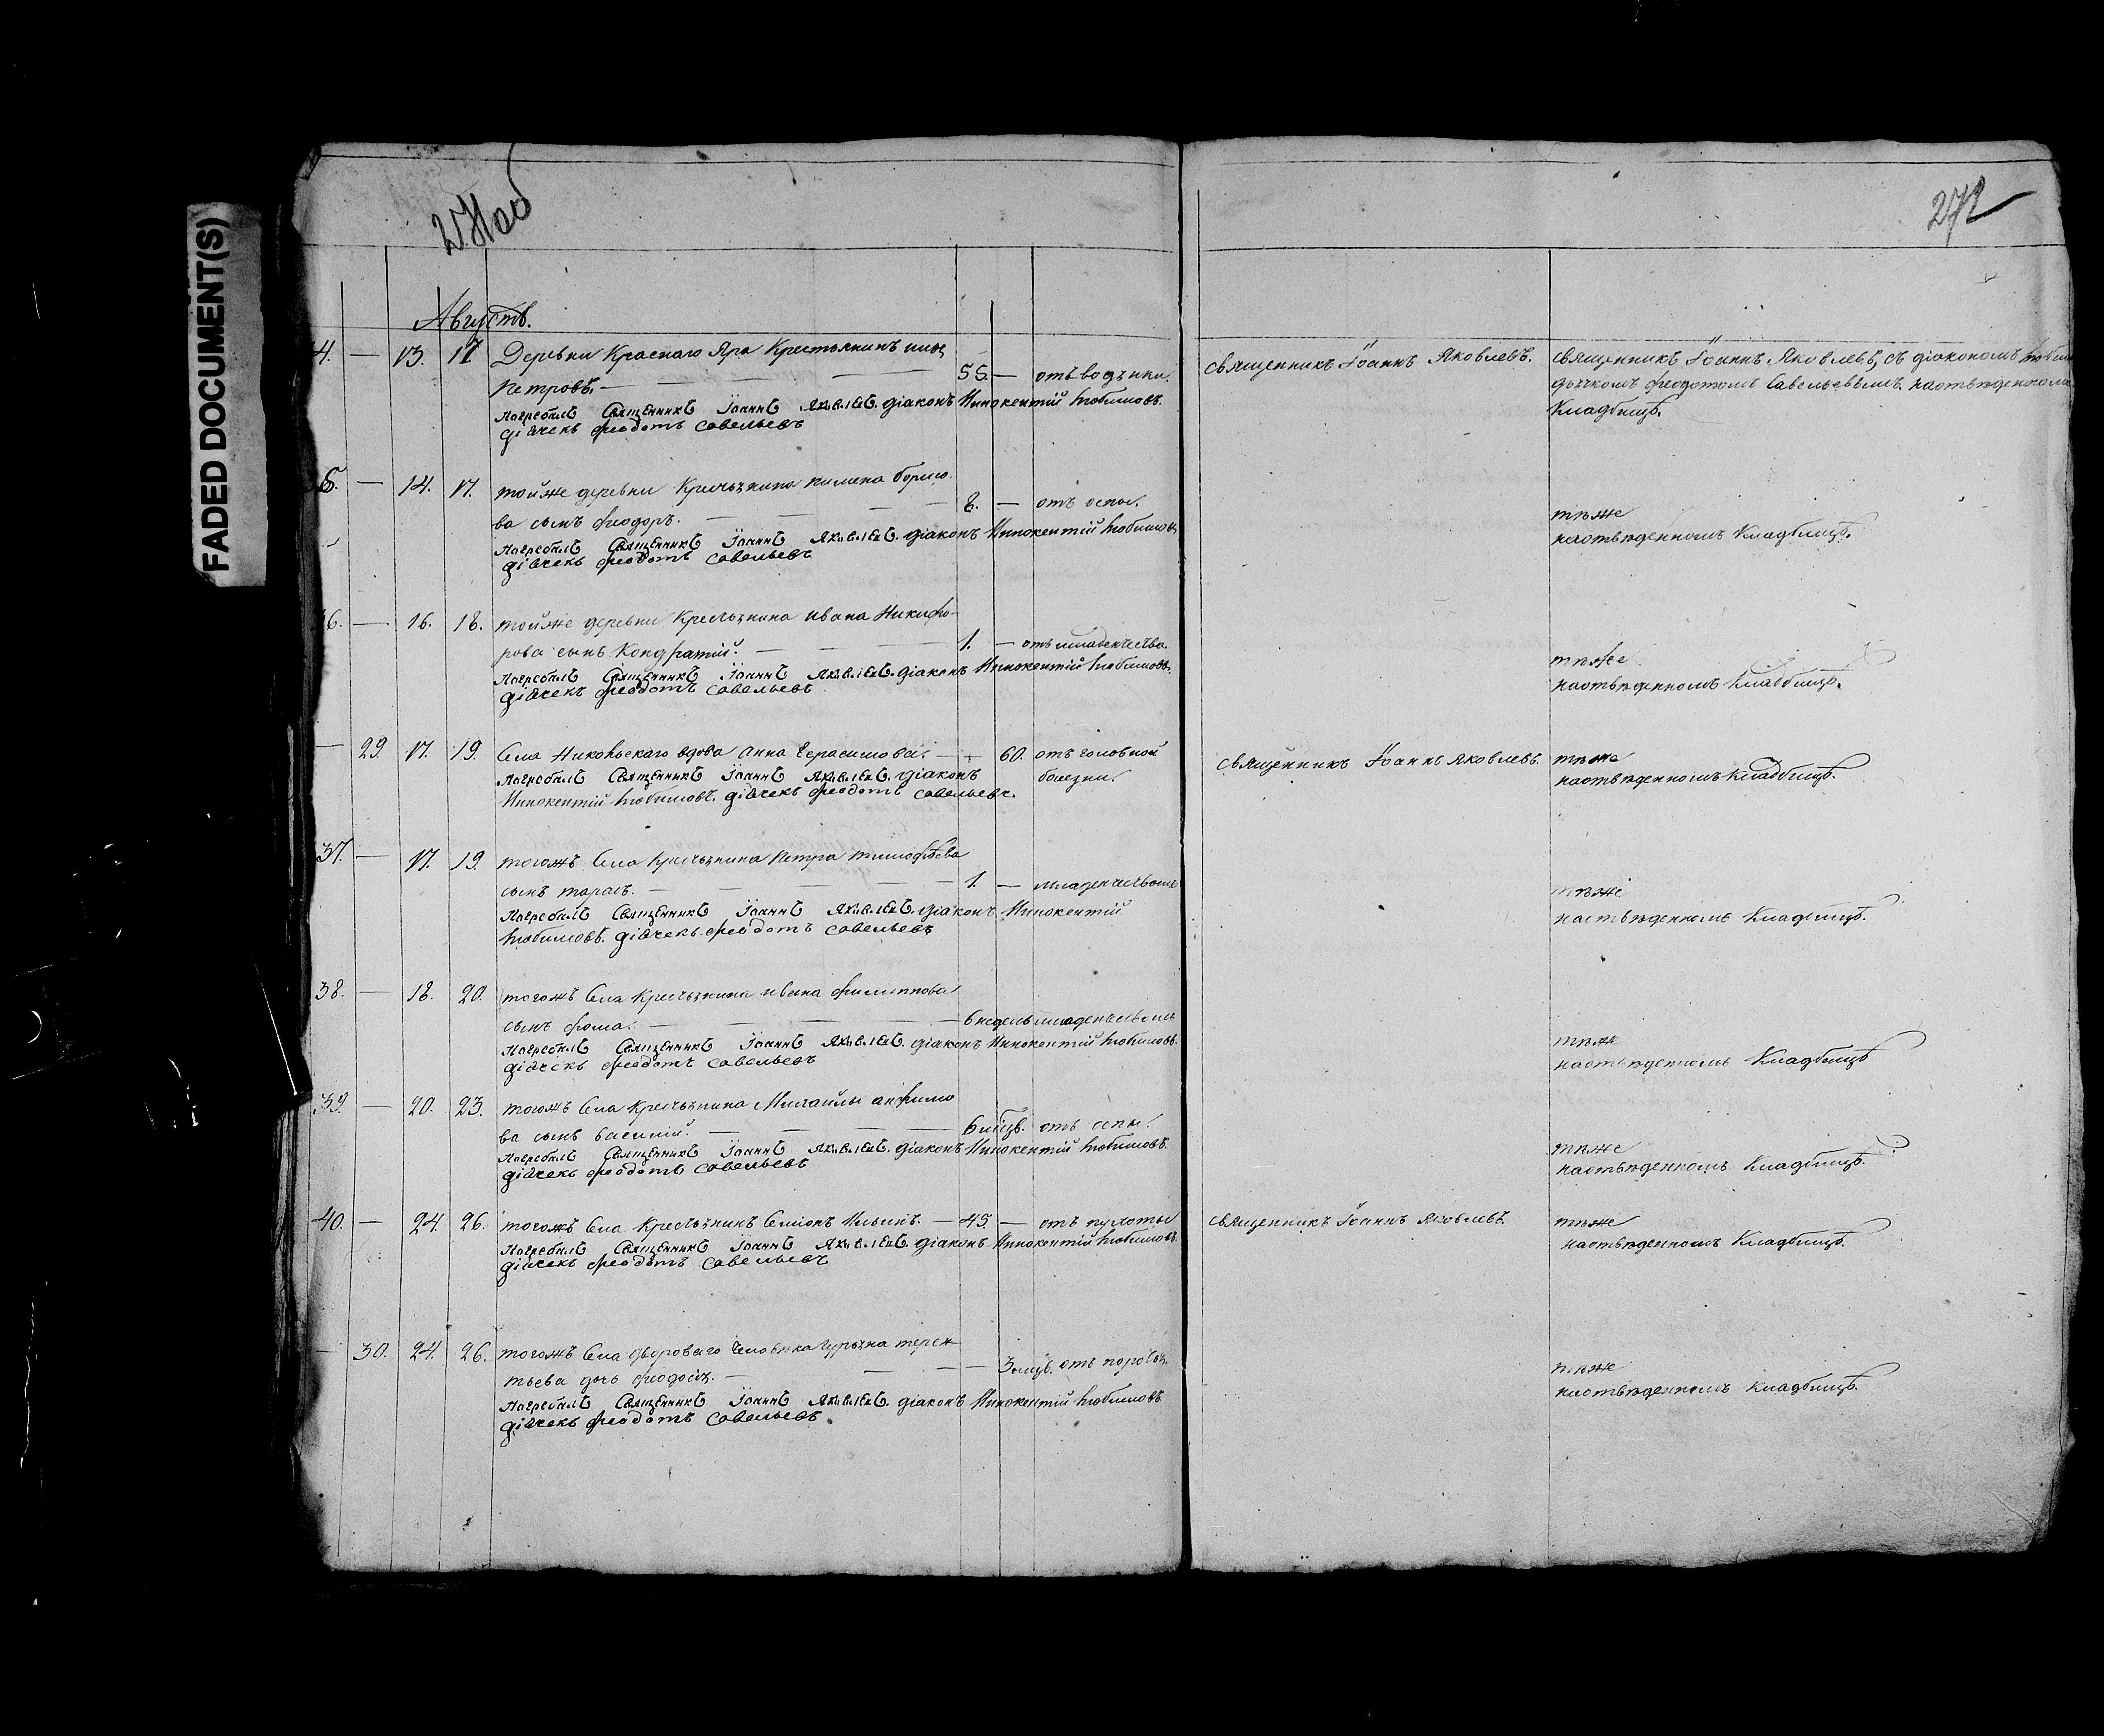 FADED DOCUMENT(S)
271об
272
Августъ.
4. — 13. 17. Деревни Краснаго Яра Крестьянинъ
Петровъ. — 55. — отъ водянки. священникъ Іоаннъ Яковлевъ. священникъ Іоаннъ Яковлевъ, съ діакономъ
дьячкомъ Феодотомъ Савельевымъ. наотведенномъ
Кладбищѣ.
Погребалъ Священникъ Іоаннъ Яковлевъ. діаконъ Иннокентій Любимовъ.
діячекъ Феодотъ Савельевъ
5. — 14. 17. тойже деревни Крестьянина пимена борисо
ва сынъ Феодоръ. — 8. — отъ оспы. тѣже
наотведенномъ Кладбищѣ.
Погребалъ Священникъ Іоаннъ Яковлевъ. діаконъ Иннокентій Любимовъ
діячекъ Феодотъ Савельевъ
6. — 16. 18. тойже деревни Крестьянина ивана Никифо-
рова сынъ Кондратій. — 1. — отъ младенчества тѣже
наотведенномъ Кладбищѣ.
Погребалъ Священникъ Іоаннъ Яковлевъ. діаконъ Иннокентій Любимовъ.
діячекъ Феодотъ Савельевъ
— 29 17. 19. Села Никольскаго вдова анна Герасимова. — 60. отъ головной священникъ Іоаннъ Яковлевъ. тѣже
болезни. наотведенномъ Кладбищѣ.
Погребалъ Священникъ Іоаннъ Яковлевъ. діаконъ
Иннокентій Любимовъ. діячекъ Феодотъ Савельевъ.
37. — 17. 19. тогожъ Села Крестьянина Петра тимофѣева
сынъ тарасъ. — 1. — младенчествомъ тѣже
наотведенномъ Кладбищѣ.
Погребалъ Священникъ Іоаннъ Яковлевъ. діаконъ Иннокентій
Любимовъ. діячекъ Феодотъ Савельевъ
38. — 18. 20. тогожъ Села Крестьянина ивана филиппова
сынъ фома. — 6 недель младенчествомъ тѣже
наотведенномъ Кладбищѣ
Погребалъ Священникъ Іоаннъ Яковлевъ. діаконъ Иннокентій Любимовъ.
діячекъ Феодотъ Савельевъ
39. — 20. 23. тогожъ Села Крестьянина Михайлы анфимо
ва сынъ василій. — 6 мѣцъ. отъ оспы. тѣже
наотведенномъ Кладбищѣ.
Погребалъ Священникъ Іоаннъ Яковлевъ. діаконъ Иннокентій Любимовъ.
діячекъ Феодотъ Савельевъ
40. — 24. 26. тогожъ Села Крестьянинъ Семіонъ Ильинъ. — 45. — отъ священникъ Іоаннъ Яковлевъ. тѣже
наотведенномъ Кладбищѣ.
Погребалъ Священникъ Іоаннъ Яковлевъ. діаконъ Иннокентій Любимовъ.
діячекъ Феодотъ Савельевъ
— 30. 24. 26. тогожъ Села дворового человѣка терен
тьева дочь — 3 мцѣ. отъ тѣже
наотведенномъ Кладбищѣ.
Погребалъ Священникъ Іоаннъ Яковлевъ. діаконъ Иннокентій Любимовъ
діячекъ Феодотъ Савельевъ.